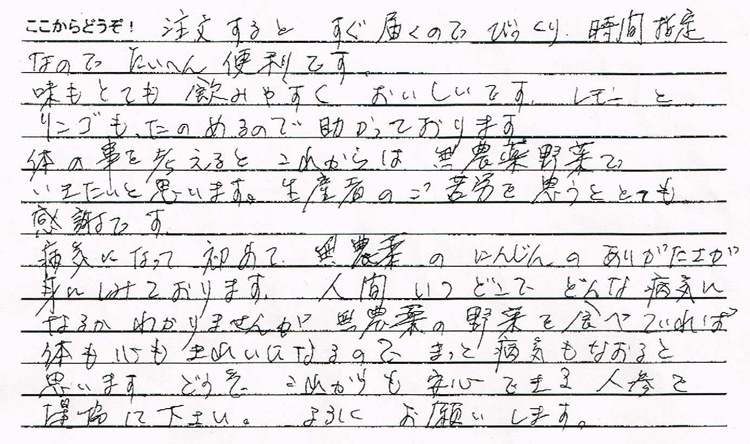 ここからどうぞ! 注文すると すぐ届くので びっくり. 時間指定
なので たいへん 便利です.
味もとても 飲みやすく おいしいです. レモンと
リンゴも、たのめるので 助かっております
体の事を考えると これからは 無農薬野菜で
いきたいと思います。生産者のご苦労を思うととても
感謝です.
病気になって 初めて、無農薬のにんじんのありがたさが
身にしみております. 人間いつどこで どんな病気に
なるか わかりませんが 無農薬の野菜を食べていれば
体も心もきれいになるので、きっと病気もなおると
思います どうぞ これからも 安心できる人参を
に下さい。 よろしく お願いします。